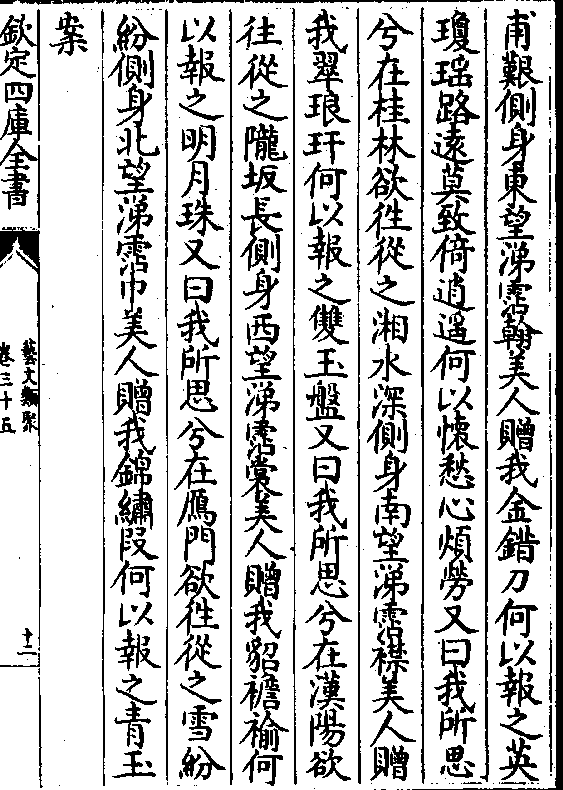 甫艱側身東望涕霑翰美人贈我金錯刀何以報之英
瓊瑤路遠莫致倚逍遥何以懷愁心煩勞又曰我所思
兮在桂林欲徃從之湘水深側身南望涕霑襟美人贈
我翠琅玕何以報之雙玉盤又曰我所思兮在漢陽欲
徃從之隴坂長側身西望涕霑裳美人贈我貂襜褕何
以報之明月珠又曰我所思兮在鴈門欲徃從之雪紛
紛側身北望涕霑巾美人贈我錦繡段何以報之青玉
案
欽定四庫全書
藝文類聚
卷三十五
十二